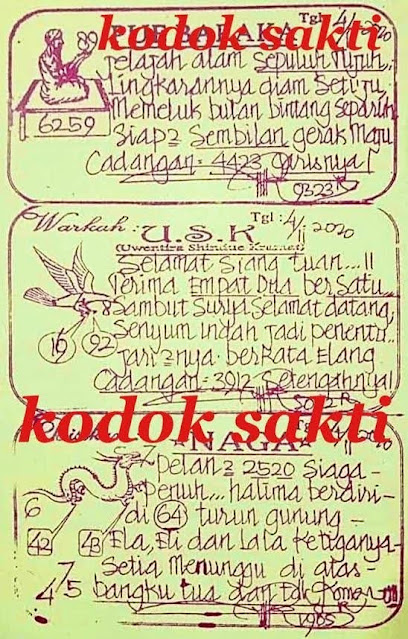 kodok sakti
Tgl 4/1 2020
Jelajah alam Sepuluh Tujuh,
Lingkarannya diam Setuju,
Memeluk bulan bintang separuh
Siap2 Sembilan gerak Maju
6259
Cadangan = 4423 Garisnya!
9323 R
Warkah : U.S.K Tgl : 4/1 2020
(Uwentira Shindue Kramat)
Selamat Siang tuan...!!
Terima Empat Dua ber Satu...
Sambut Surya Selamat datang,
Senyum indah Jadi penentu..
19 92 8
Jari2nya berkata Elang
Cadangan = 3912 Setengahnya!
kodok sakti
NAGA
Pelan2 2520 Siaga -
Penuh... halima berdiri -
di 64 turun gunung -
6
42 43
Ela, Eli dan Lala Ketiganya -
Setia Menunggu di atas -
4 7 5
bangku tua dan
1965